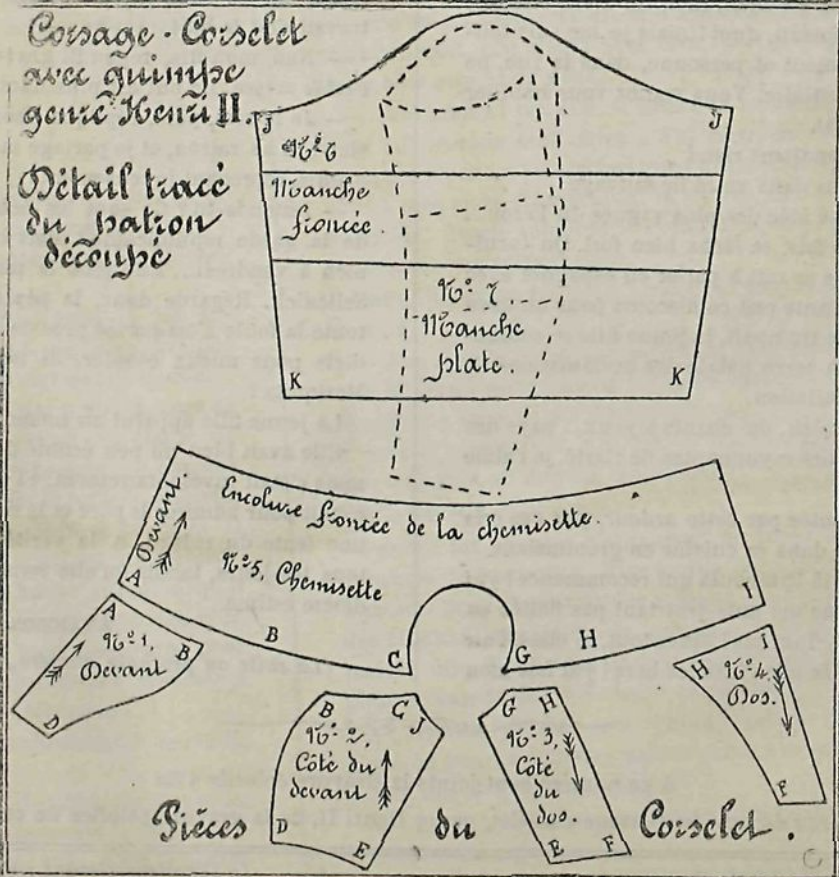 Corsage-Corselet
avec guimpe
genre Henri II.
Détail tracé
du patron
découpé
J
J
Manche
froncée.
Nº 7.
Manche
plate.
K
K
Encolure froncée de la chemisette.
Devant
A
Nº 5, Chemisette
B
C
G
H
I
A
Nº 1,
Devant
B
D
B C J
Nº 2,
Côté du
devant
D
E
G H
Nº 3,
Côté
du
dos.
E F
H I
Nº 4.
Dos.
F
Pièces du Corselet.